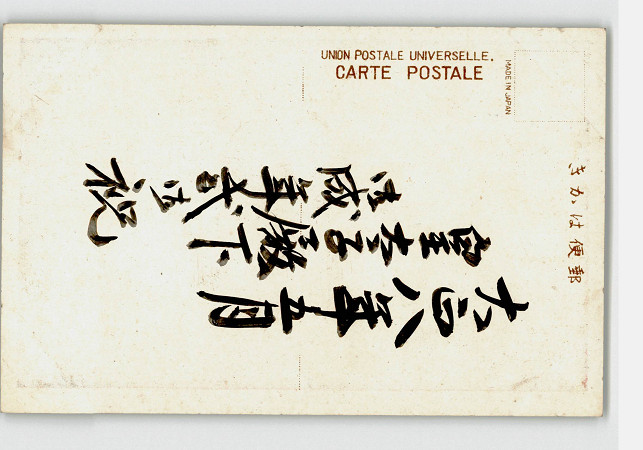 UNION POSTALE UNIVERSELLE.
CARTE POSTALE
MADE IN JAPAN
郵便はかき
大正八年五月
皇太子殿下
御成年式御祝